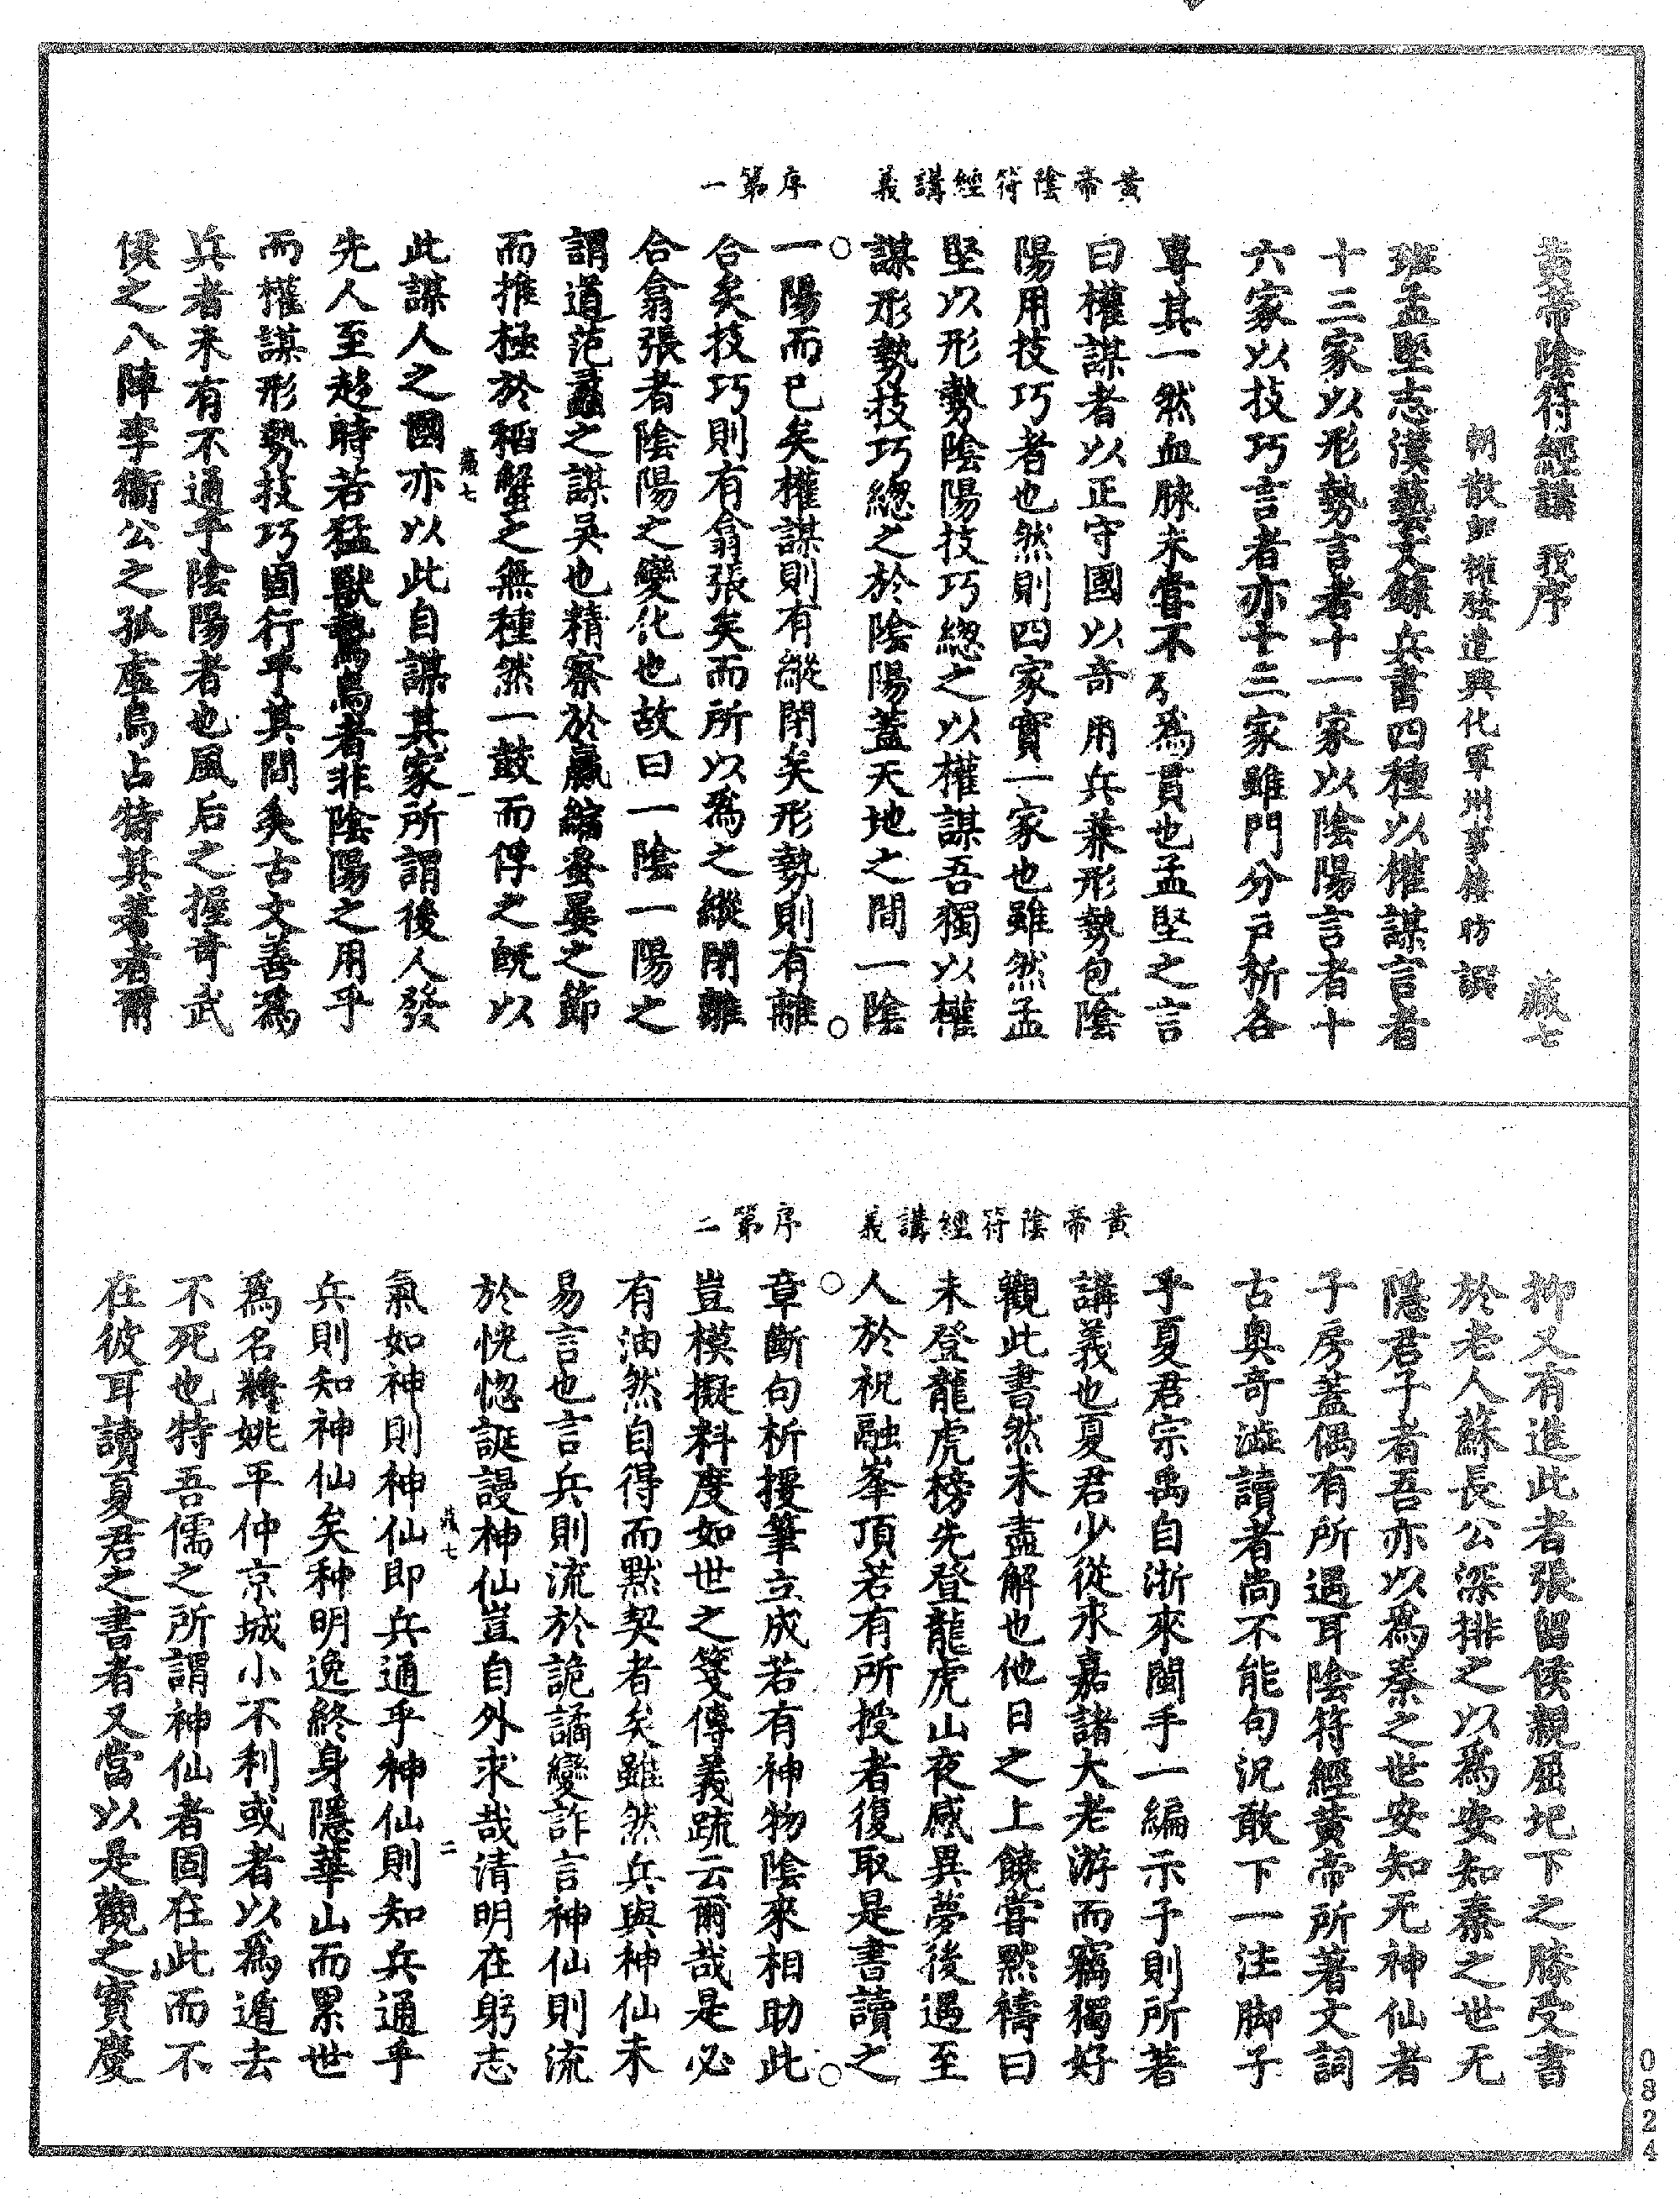 黃帝陰符經講義　序第一
黃帝陰符經講義序　藏七
朝散郎權發遣興化軍州事樓昉譔
班孟堅志漢藝文錄兵書四種以權謀言者
十三家以形勢言者十一家以陰陽言者十
六家以技巧言者亦十三家雖門分戶析各
專其一然血脉未嘗不爲貫也孟堅之言
曰權謀者以正守國以奇用兵兼形勢包陰
陽用技巧者也然則四家實一家也雖然孟
堅以形勢陰陽技巧總之以權謀吾獨以權
謀形勢技巧總之於陰陽蓋天地之間一陰
一陽而已矣權謀則有縱閉矣形勢則有離
合矣技巧則有翕張矣而所以爲之縱閉離
合翕張者陰陽之變化也故曰一陰一陽之
謂道范蠡之謀吳也精察於贏縮蚤晏之節
而推極於稻蟹之無種然一鼓而俘之旣以
藏七　一
此謀人之國亦以此自謀其家所謂後人發
先人至趍時若猛獸鷙鳥者非陰陽之用乎
而權謀形勢技巧固行乎其間矣古文善爲
兵者未有不通乎陰陽者也風后之握奇武
侯之八陣李衞公之孤虛鳥占特其著者爾
黃帝陰符經講義　序第二
抑又有進此者張留侯親屈圯下之膝受書
於老人蘇長公深排之以爲安知秦之世无
隱君子者吾亦以爲秦之世安知无神仙者
子房蓋偶有所遇耳陰符經黃帝所著文詞
古奧奇澁讀者尚不能句況敢下一注脚子
乎夏君宗禹自浙來閩手一編示予則所著
講義也夏君少從永嘉諸大老游而竊獨好
觀此書然未盡解也他日之上饒嘗黙禱曰
未登龍虎榜先登龍虎山夜感異夢後遇至
人於祝融峯頂若有所授者復取是書讀之
章斷句析援筆立成若有神物陰來相助此
豈模擬料度如世之箋傳義疏云爾哉是必
有油然自得而默契者矣雖然兵與神仙未
易言也言兵則流於詭譎變詐言神仙則流
於恍惚誕謾神仙豈自外求哉清明在躬志
藏七　二
氣如神則神仙即兵通乎神仙則知兵通乎
兵則知神仙矣种明逸終身隱華山而累世
爲名將姚平仲京城小不利或者以爲遁去
不死也特吾儒之所謂神仙者固在此而不
在彼耳讀夏君之書者又當以是觀之寶慶
0824